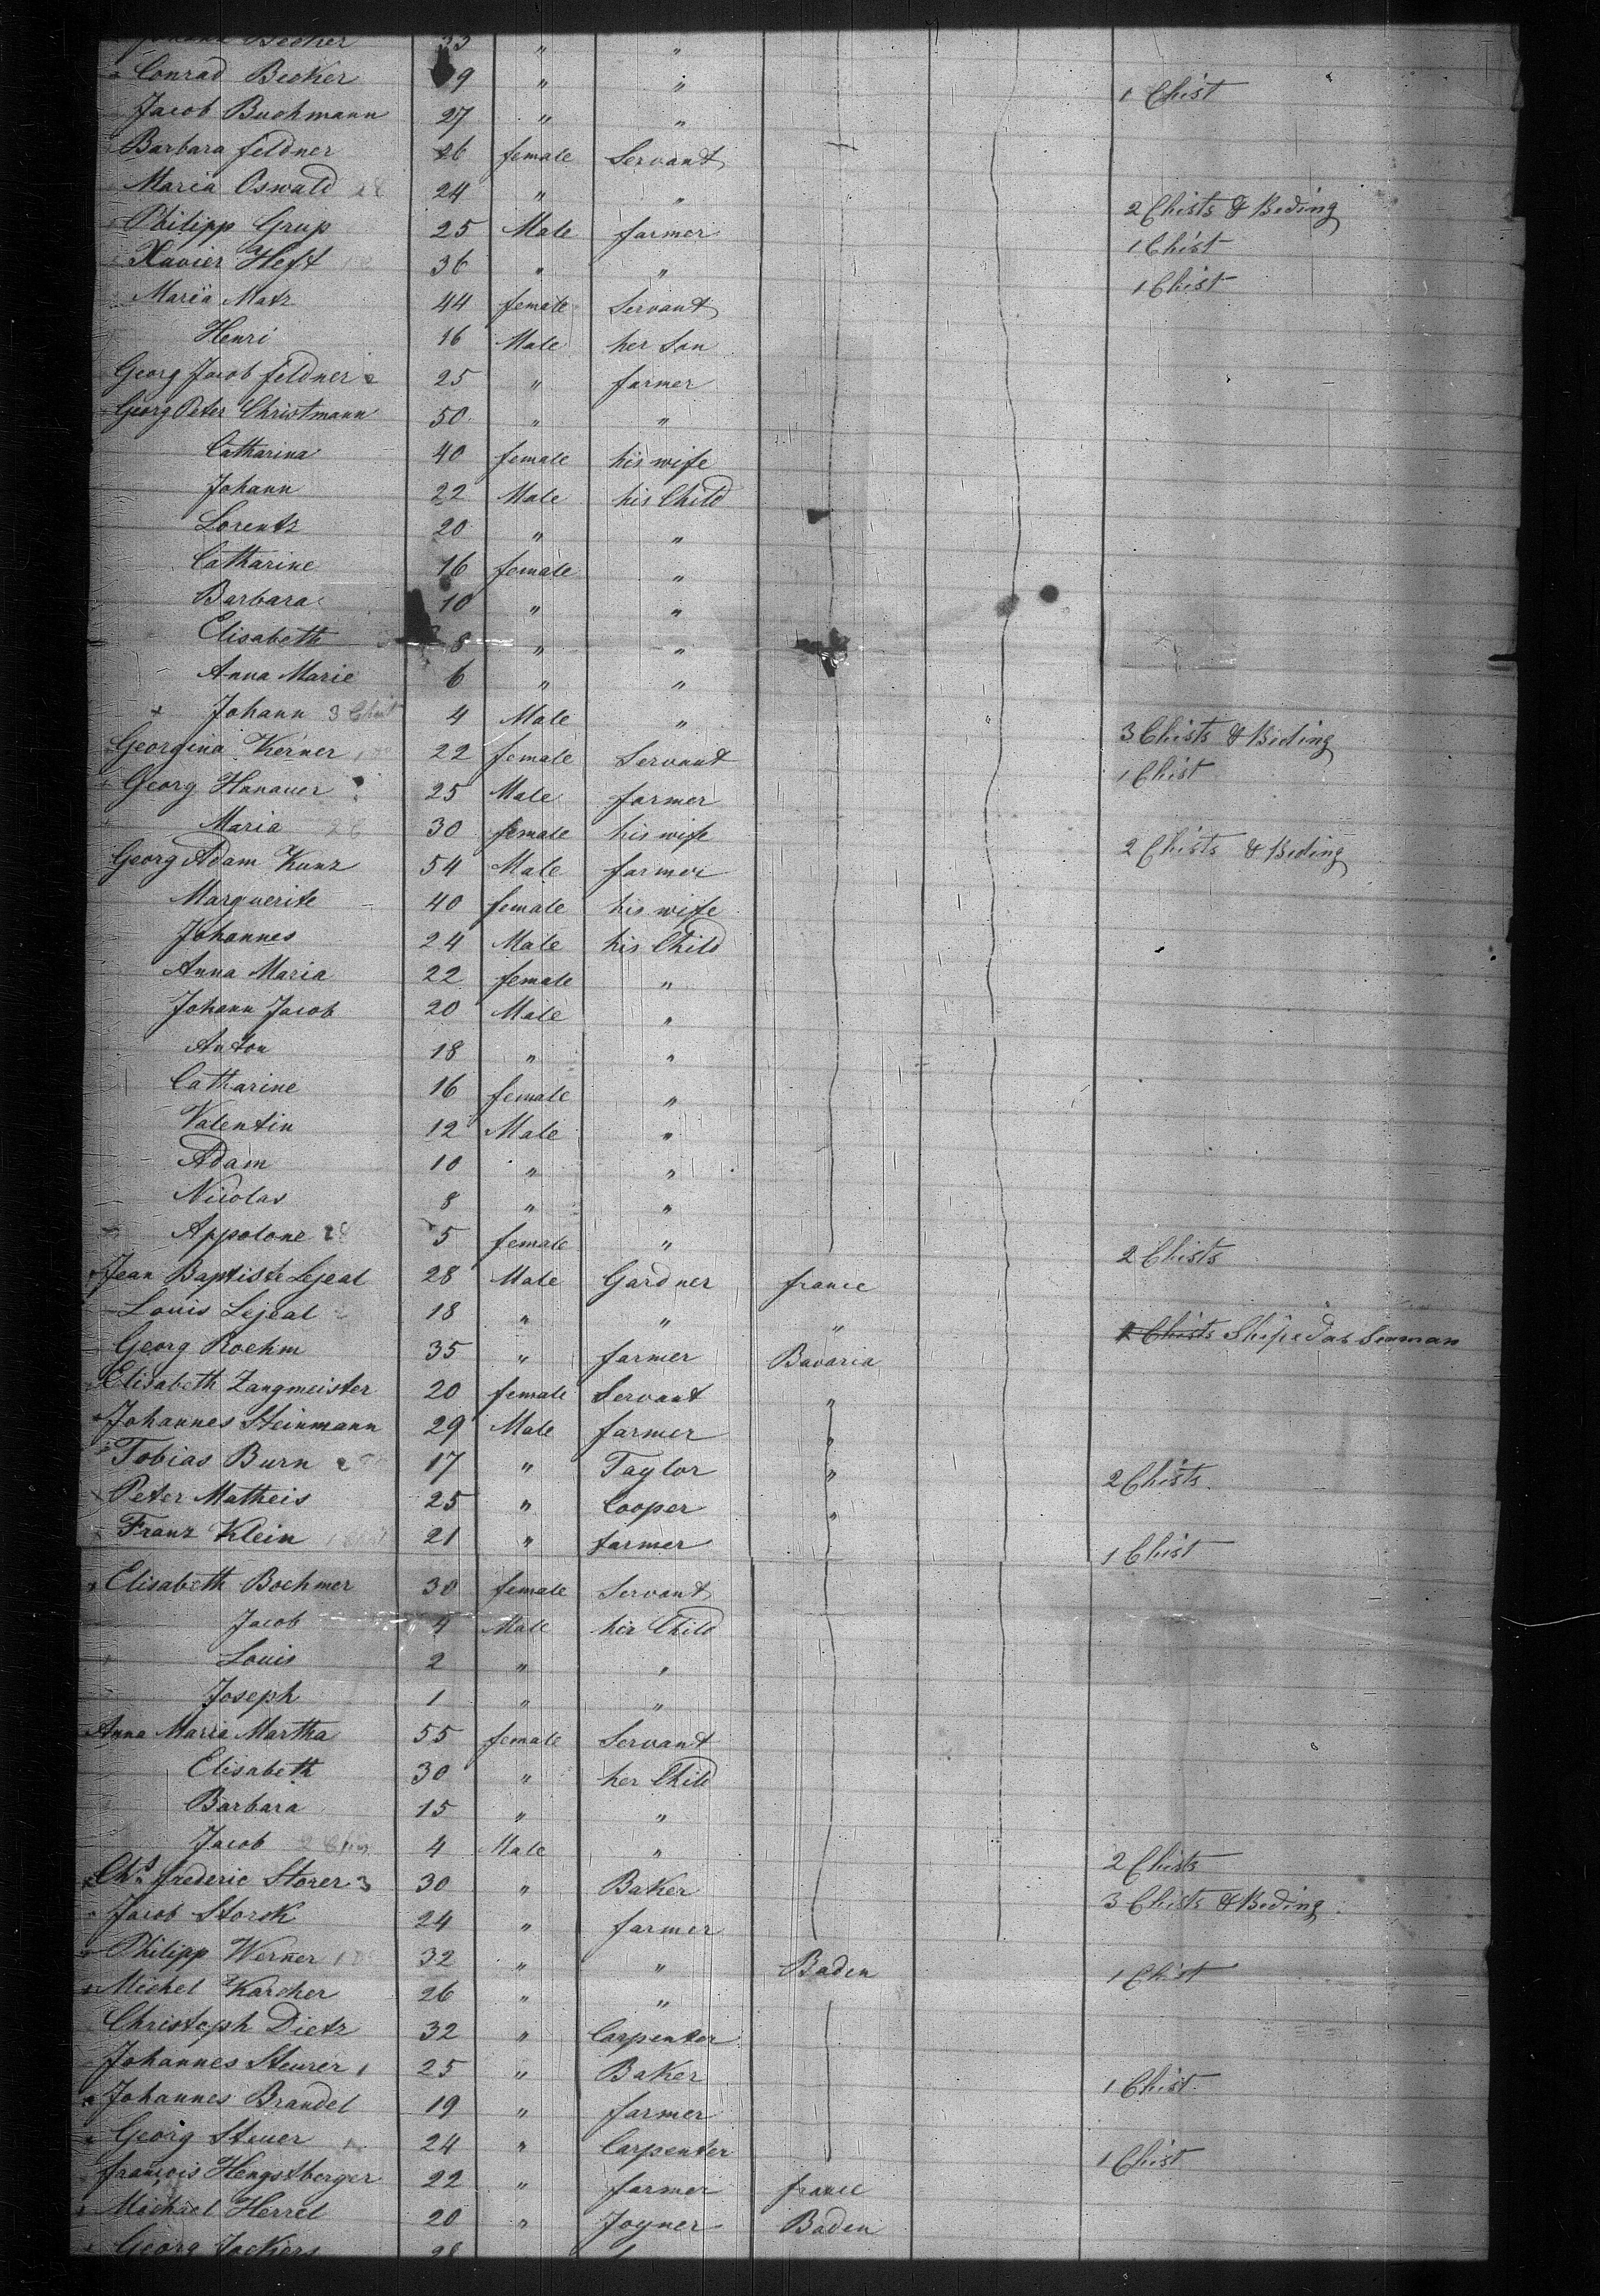 Becker 33 " "
Conrad Becker 9 " " 1 Chist
Jacob Buchmann 27 " "
Barbara feldner 26 female Servant
Maria Oswald 24 " " 2 Chists & Beding
Philipp Grup 25 Male farmer 1 Chist
Xavier Heft 36 " " 1 Chist
Maria Matz 44 female Servant
Henri 16 Male her Son
Georg Jacob feldner 25 " farmer
Georg Peter Christmann 50 " "
Catharina 40 female his wife
Johann 22 Male his Child
Lorentz 20 " "
Catharine 16 female "
Barbara 10 " "
Elisabeth 8 " "
Anna Marie 6 " "
+ Johann 3 Chist 4 Male " 3 Chists & Beding
Georgina Kerner 22 female Servant 1 Chist
Georg Hanauer 25 Male farmer
Maria 26 30 female his wife 2 Chists & Beding
Georg Adam Kunz 54 Male farmer
Marguerite 40 female his wife
Johannes 24 Male his Child
Anna Maria 22 female "
Johann Jacob 20 Male "
Anton 18 " "
Catharine 16 female "
Valentin 12 Male "
Adam 10 " "
Nicolas 8 " "
Appolone 5 female " 2 Chists
Jean Baptiste Lejeal 28 Male Gardner france
Louis Lejeal 18 " " " Chists Shipd as Seaman
Georg Roehm 35 " farmer Bavaria
Elisabeth Zangmeister 20 female Servant "
Johannes Steinmann 29 Male farmer "
Tobias Burn 17 " Taylor " 2 Chists
Peter Matheis 25 " Cooper "
Franz Klein 21 " farmer 1 Chist
Elisabeth Boehmer 30 female Servant
Jacob 4 Male her Child
Louis 2 " "
Joseph 1 " "
Anna Maria Martha 55 female Servant
Elisabeth 30 " her Child
Barbara 15 " "
Jacob 4 Male " 2 Chists
Chs frederic Storer 3 30 " Baker 3 Chists & Beding
Jacob Storck 24 " farmer
Philipp Werner 32 " " Baden 1 Chist
Michel Karcher 26 " "
Christoph Dietz 32 " Carpenter
Johannes Steurer 1 25 " Baker 1 Chist
Johannes Brandel 19 " farmer
Georg Steuer 24 " Carpenter 1 Chist
francois Hengstberger 22 " farmer france
Michael Herrel 20 " Joyner Baden
Georg Jockers 28